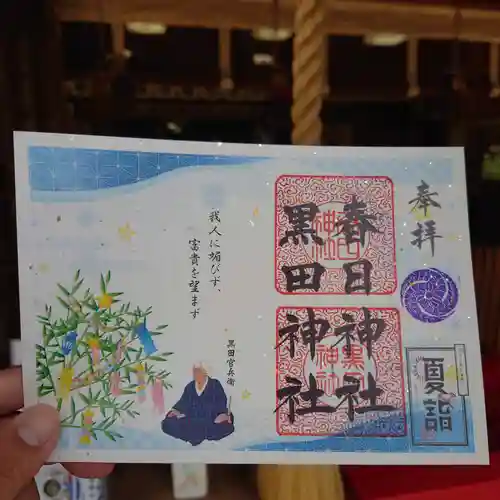 奉拝
春日神社
黒田神社
夏詣
我人に媚びず、
富貴を望まず
黒田官兵衛